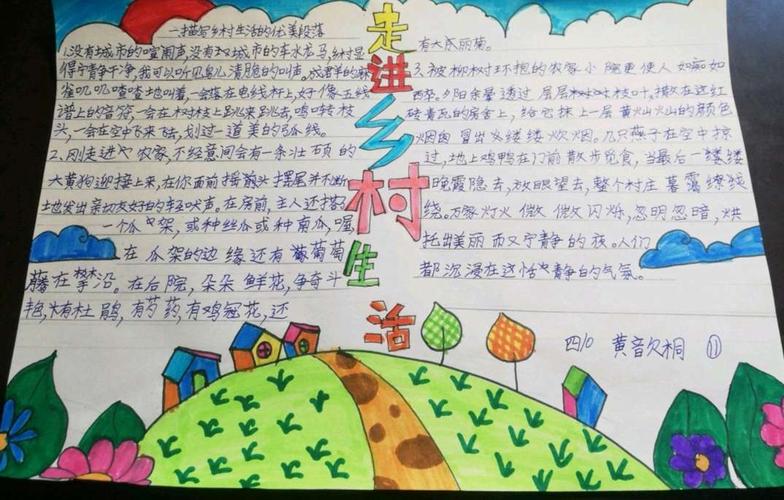 走进乡村生活
一描写乡村生活的优美段落
1.没有城市的喧闹声,没有城市的车水龙马,乡村显
得宁静干净,我可以听见鸟儿清脆的叫声,成群的麻
雀叽叽喳喳地叫着,一会落在电线杆上,好像五线
谱上的音符,一会在树枝上跳来跳去,鸣啭枝
头,一会在空中飞来飞去,划过一道美的弧线。
2.刚走进农家,不经意间会有一条壮硕的
大黄狗迎接上来,在你面前摇头摆尾并不断
地发出亲切友好的轻吠声。在房前,主人还搭
一个瓜架,或种丝瓜或种南瓜,喔
在瓜架的边缘还有葡萄
藤在攀沿。在后院,朵朵鲜花,争奇斗
艳,有杜鹃,有芍药,有鸡冠花,还
有大朵丽菊。
3.被柳树环抱的农家小院更使人如痴如
醉。夕阳余晕透过层层树枝叶,撒在这红
砖青瓦的房舍上,给它抹上一层黄灿灿的颜色
烟囱冒出缕缕炊烟。几只燕子在空中掠
过,地上鸡鸭在门前散步觅食,当最后一缕缕
晚霞隐去,放眼望去,整个村庄暮霭缭
绕。万家灯火微微闪烁,忽明忽暗,烘
托出美丽而又宁静的夜。人们
都沉浸在这恬静的气氛。
四10 黄音欠桐 11